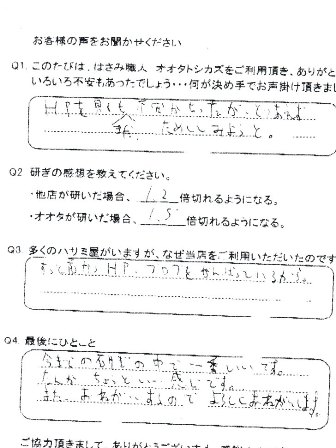 お客様の声をお聞かせください
Q1. このたびは、はさみ職人 オオタトシカズをご利用頂き、ありがと
いろいろ不安もあったでしょう・・・何が決め手でお声掛け頂きまし
HPを見ても
ためしてみようと。
Q2 研ぎの感想を教えてください。
・他店が研いだ場合、 1.2 倍切れるようになる。
・オオタが研いだ場合、 1.5 倍切れるようになる。
Q3. 多くのハサミ屋がいますが、なぜ当店をご利用いただいたのです
HP、ブログをがんばっているから。
Q4. 最後にひとこと
今までの研ぎの中で一番いいです。
なんかちょっといい感じです。
また、おねがいするので よろしくおねがいします
ご協力頂きまして、ありがとうございます